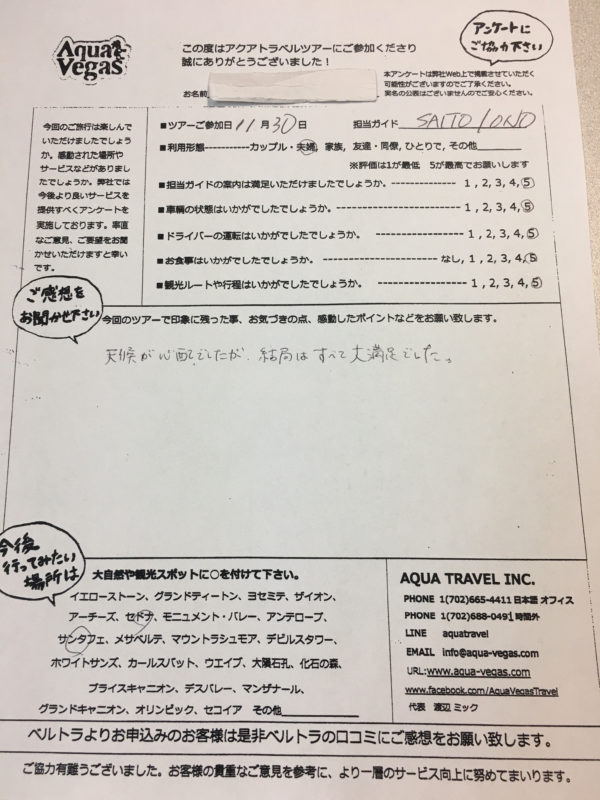 Aqua Vegas
この度はアクアトラベルツアーにご参加くださり
誠にありがとうございました！
アンケートに
ご協力下さい
お名前
本アンケートは弊社Web上で掲載させていただく
可能性がございますのでご了承ください。
実名の公表はございませんのでご安心ください。
今回のご旅行は楽しんで
いただけましたでしょう
か。感動された場所や
サービスなどがありまし
たでしょうか。弊社では
今後より良いサービスを
提供すべくアンケートを
実施しております。率直
なご意見、ご要望をお聞
かせいただけますと幸い
です。
■ツアーご参加日 11月30日 担当ガイド SAITO/ONO
■利用形態-----------カップル・夫婦, 家族, 友達・同僚, ひとりで, その他
※評価は1が最低 5が最高でお願いします
■担当ガイドの案内は満足いただけましたでしょうか。-------------- 1 , 2, 3, 4, 5
■車輌の状態はいかがでしたでしょうか。---------------------- 1 , 2, 3, 4, 5
■ドライバーの運転はいかがでしたでしょうか。------------------ 1 , 2, 3, 4, 5
■お食事はいかがでしたでしょうか。----------------------なし, 1, 2, 3, 4, 5
■観光ルートや行程はいかがでしたでしょうか。------------------ 1 , 2, 3, 4, 5
ご感想を
お聞かせ下さい
今回のツアーで印象に残った事、お気づきの点、感動したポイントなどをお願い致します。
天候が心配でしたが、結局はすべて大満足でした。
今後
行ってみたい
場所は
大自然や観光スポットに○を付けて下さい。
イエローストーン、グランドティートン、ヨセミテ、ザイオン、
アーチーズ、セドナ、モニュメント・バレー、アンテロープ、
サンタフェ、メサベルテ、マウントラシュモア、デビルスタワー、
ホワイトサンズ、カールスバット、ウエイブ、大隕石孔、化石の森、
ブライスキャニオン、デスバレー、マンザナール、
グランドキャニオン、オリンピック、セコイア その他
AQUA TRAVEL INC.
PHONE 1(702)665-4411 日本語 オフィス
PHONE 1(702)688-0491 時間外
LINE aquatravel
EMAIL info@aqua-vegas.com
URL:www.aqua-vegas.com
www.facebook.com/AquaVegasTravel
代表 渡辺 ミック
ベルトラよりお申込みのお客様は是非ベルトラの口コミにご感想をお願い致します。
ご協力有難うございました。お客様の貴重なご意見を参考に、より一層のサービス向上に努めてまいります。